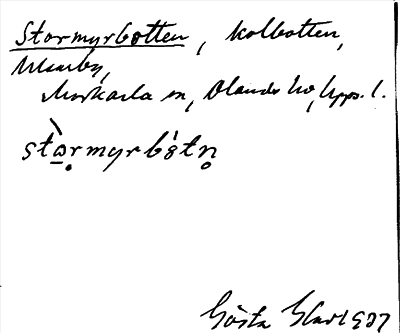 Stormyrbotten, kolbotten,
Ulunby,
Morkarla sn, Olands hd, Upps. l.
stòrmyrbòtn
Gösta Ehrl 937